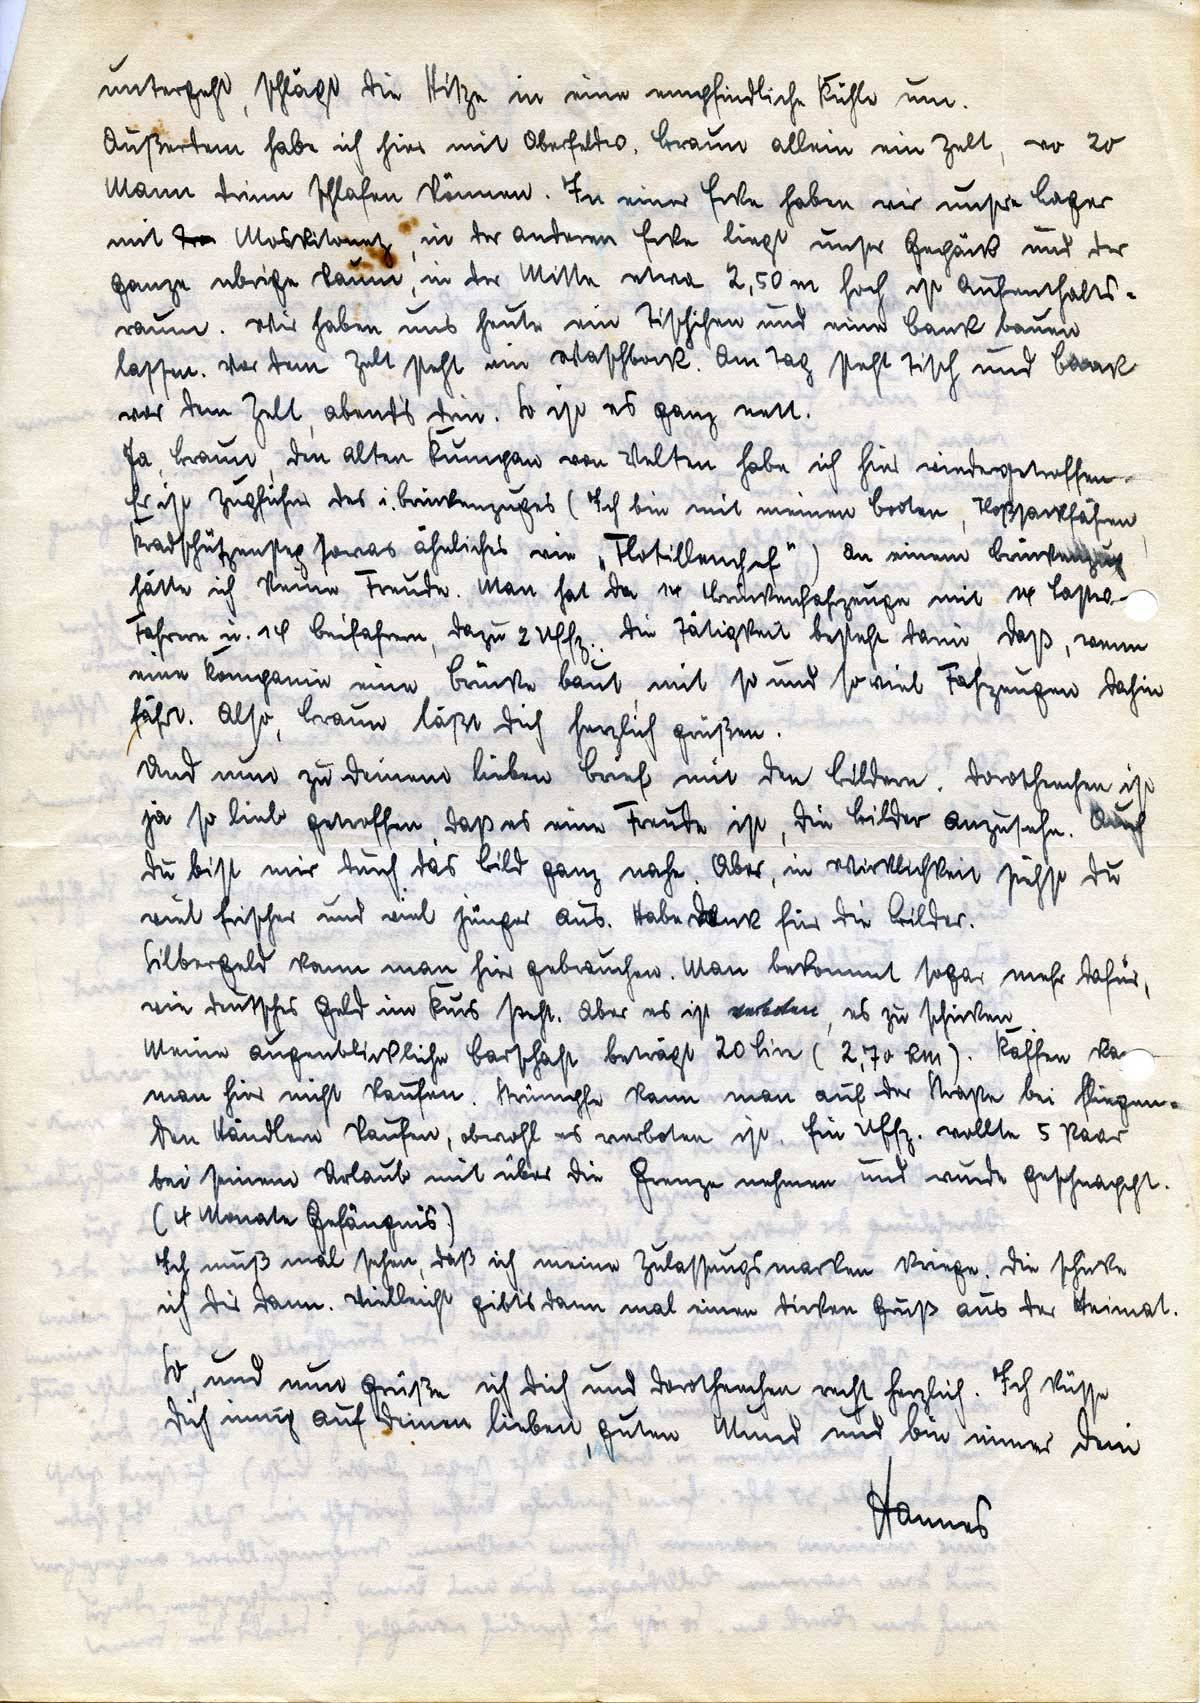 untergeht, schlägt die Hitze in eine empfindliche Kühle um.
Außerdem habe ich hier mit Oberfeldw. Braun allein ein Zelt, wo 20
Mann drinn schlafen können. In einer Ecke haben wir unsre Lager
mit Moskitonetz, in der anderen Ecke liegt unser Gepäck und der
ganze übrige Raum, in der Mitte etwa 2,50 m hoch ist Aufenthalts-
raum. Wir haben uns heute ein Tischchen und eine Bank bauen
lassen. Vor dem Zelt steht ein Waschbock. Am Tag steht Tisch und Bank
vor dem Zelt, abends drin. So ist es ganz nett.
Ja, Braun, den alten Kumpan von Velten habe ich hier wiedergetroffen
Er ist Zugführer des i. Brückenzuges (Ich bin mit meinen Booten, Floßsackfähren,
Kradschützensteg sowas ähnliches wie „Flotillenchef") An einem Brückenzug
hätte ich keine Freude. Man hat da 14 Brückenfahrzeuge mit 14 Lastw.-
Fahrern u. 14 Beifahrern, dazu 2 Uffz.. Die Tätigkeit besteht darin, daß, wenn
eine Kompanie eine Brücke baut, mit so und soviel Fahrzeugen dahin
fährt. Also, Braun läßt Dich herzlich grüßen.
Und nun zu Deinem lieben Brief mit den Bildern. Dorotheachen ist
ja so lieb getroffen, daß es eine Freude ist, die Bilder anzusehn. Auch
Du bist mir durch das Bild ganz nahe. Aber, in Wirklichkeit siehst Du
viel frischer und viel jünger aus. Habe Dank für die Bilder.
Silbergeld kann man hier gebrauchen. Man bekommt sogar mehr dafür,
wie deutsches Geld im Kurs steht. Aber es ist verboten, es zu schicken
Meine augenblickliche Barschaft beträgt 20 Lire (2,70 RM). Kaffee ka
man hier nicht kaufen. Strümpfe kann man auf der Straße bei fliegen-
den Händlern kaufen, obwohl es verboten ist. Ein Uffz. wollte 5 Paar
bei seinem Urlaub mit über die Grenze nehmen und wurde geschnappt.
(4 Monate Gefängnis)
Ich muß mal sehen, daß ich meine Zulassungsmarken kriege. Die schicke
ich Dir dann. Vielleicht gibts dann mal einen dicken Gruß aus der Heimat.
So, und nun grüße ich Dich und Dorotheachen recht herzlich. Ich küsse
Dich innig auf Deinen lieben, guten Mund und bin immer Dein
Hannes